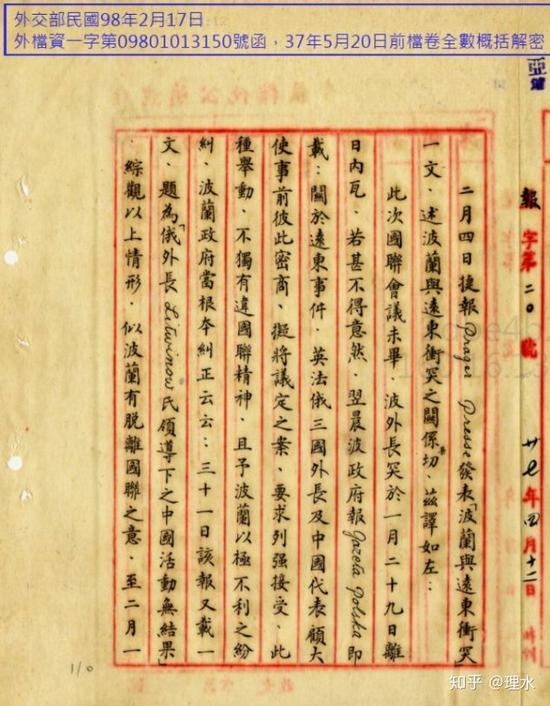 外交部民國98年2月17日
外檔資一字第09801013150號函,37年5月20日前檔卷全數概括解密
亞
報字第二〇號
廿七年四月十二日
二月四日捷報Prager Presse發表「波蘭與遠東衝突
一文、述波蘭與遠東衝突之關係 切、茲譯如左:
此次國聯會議未畢、波外長突於一月二十九日離
日內瓦、若甚不得意然、翌晨波政府報Gazeta Polska即
載:關於遠東事件、英法俄三國外長及中國代表顧大
使事前彼此密商、擬將議定之案、要求列强接受、此
種舉動、不獨有違國聯精神、且予波蘭以極不利之紛
糾、波蘭政府當根本糾正云云:三十一日該報又載一
文、題為「俄外長Litwinow氏領導下之中國活動無結果」
綜觀以上情形、似波蘭有脫離國聯之意、至二月一
110
知乎 @理水